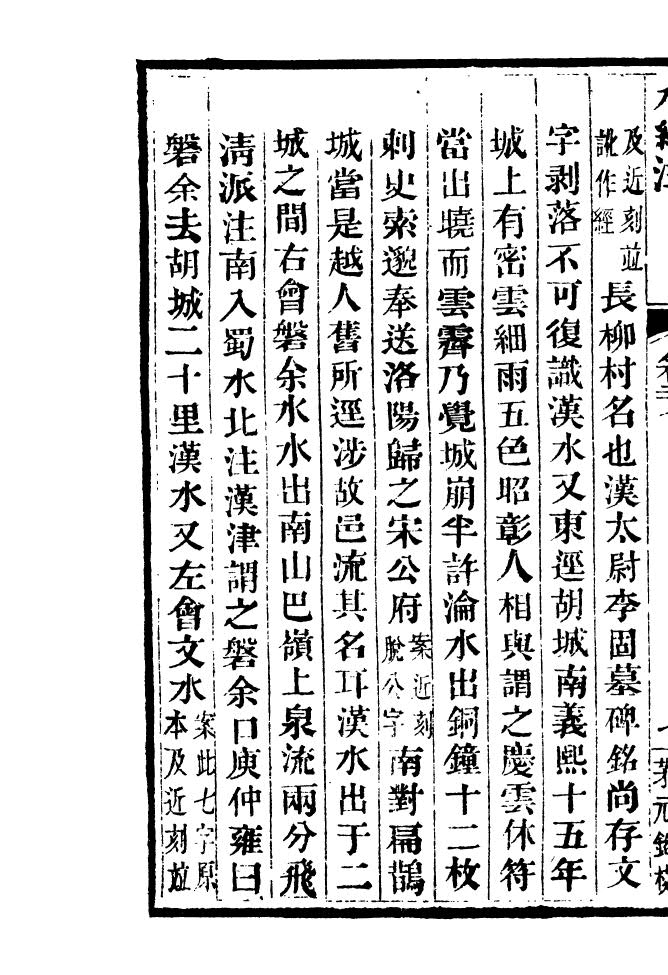 及近刻並訛作經長柳村名也漢太尉李固墓碑銘尚存文
字剥落不可復識漢水又東逕胡城南義熙十五年
城上有密雲細雨五色昭彰人相與謂之慶雲休符
當出曉而雲霽乃覺城崩半許淪水出銅鐘十二枚
刺史索邈奉送洛陽歸之宋公府案近刻脫公字南對扁鵲
城當是越人舊所逕涉故邑流其名耳漢水出于二
城之間右會磐余水水出南山巴嶺上泉流兩分飛
清派注南入蜀水北注漢津謂之磐余口庾仲雍曰
磐余去胡城二十里漢水又左會文水案此七字原本及近刻並